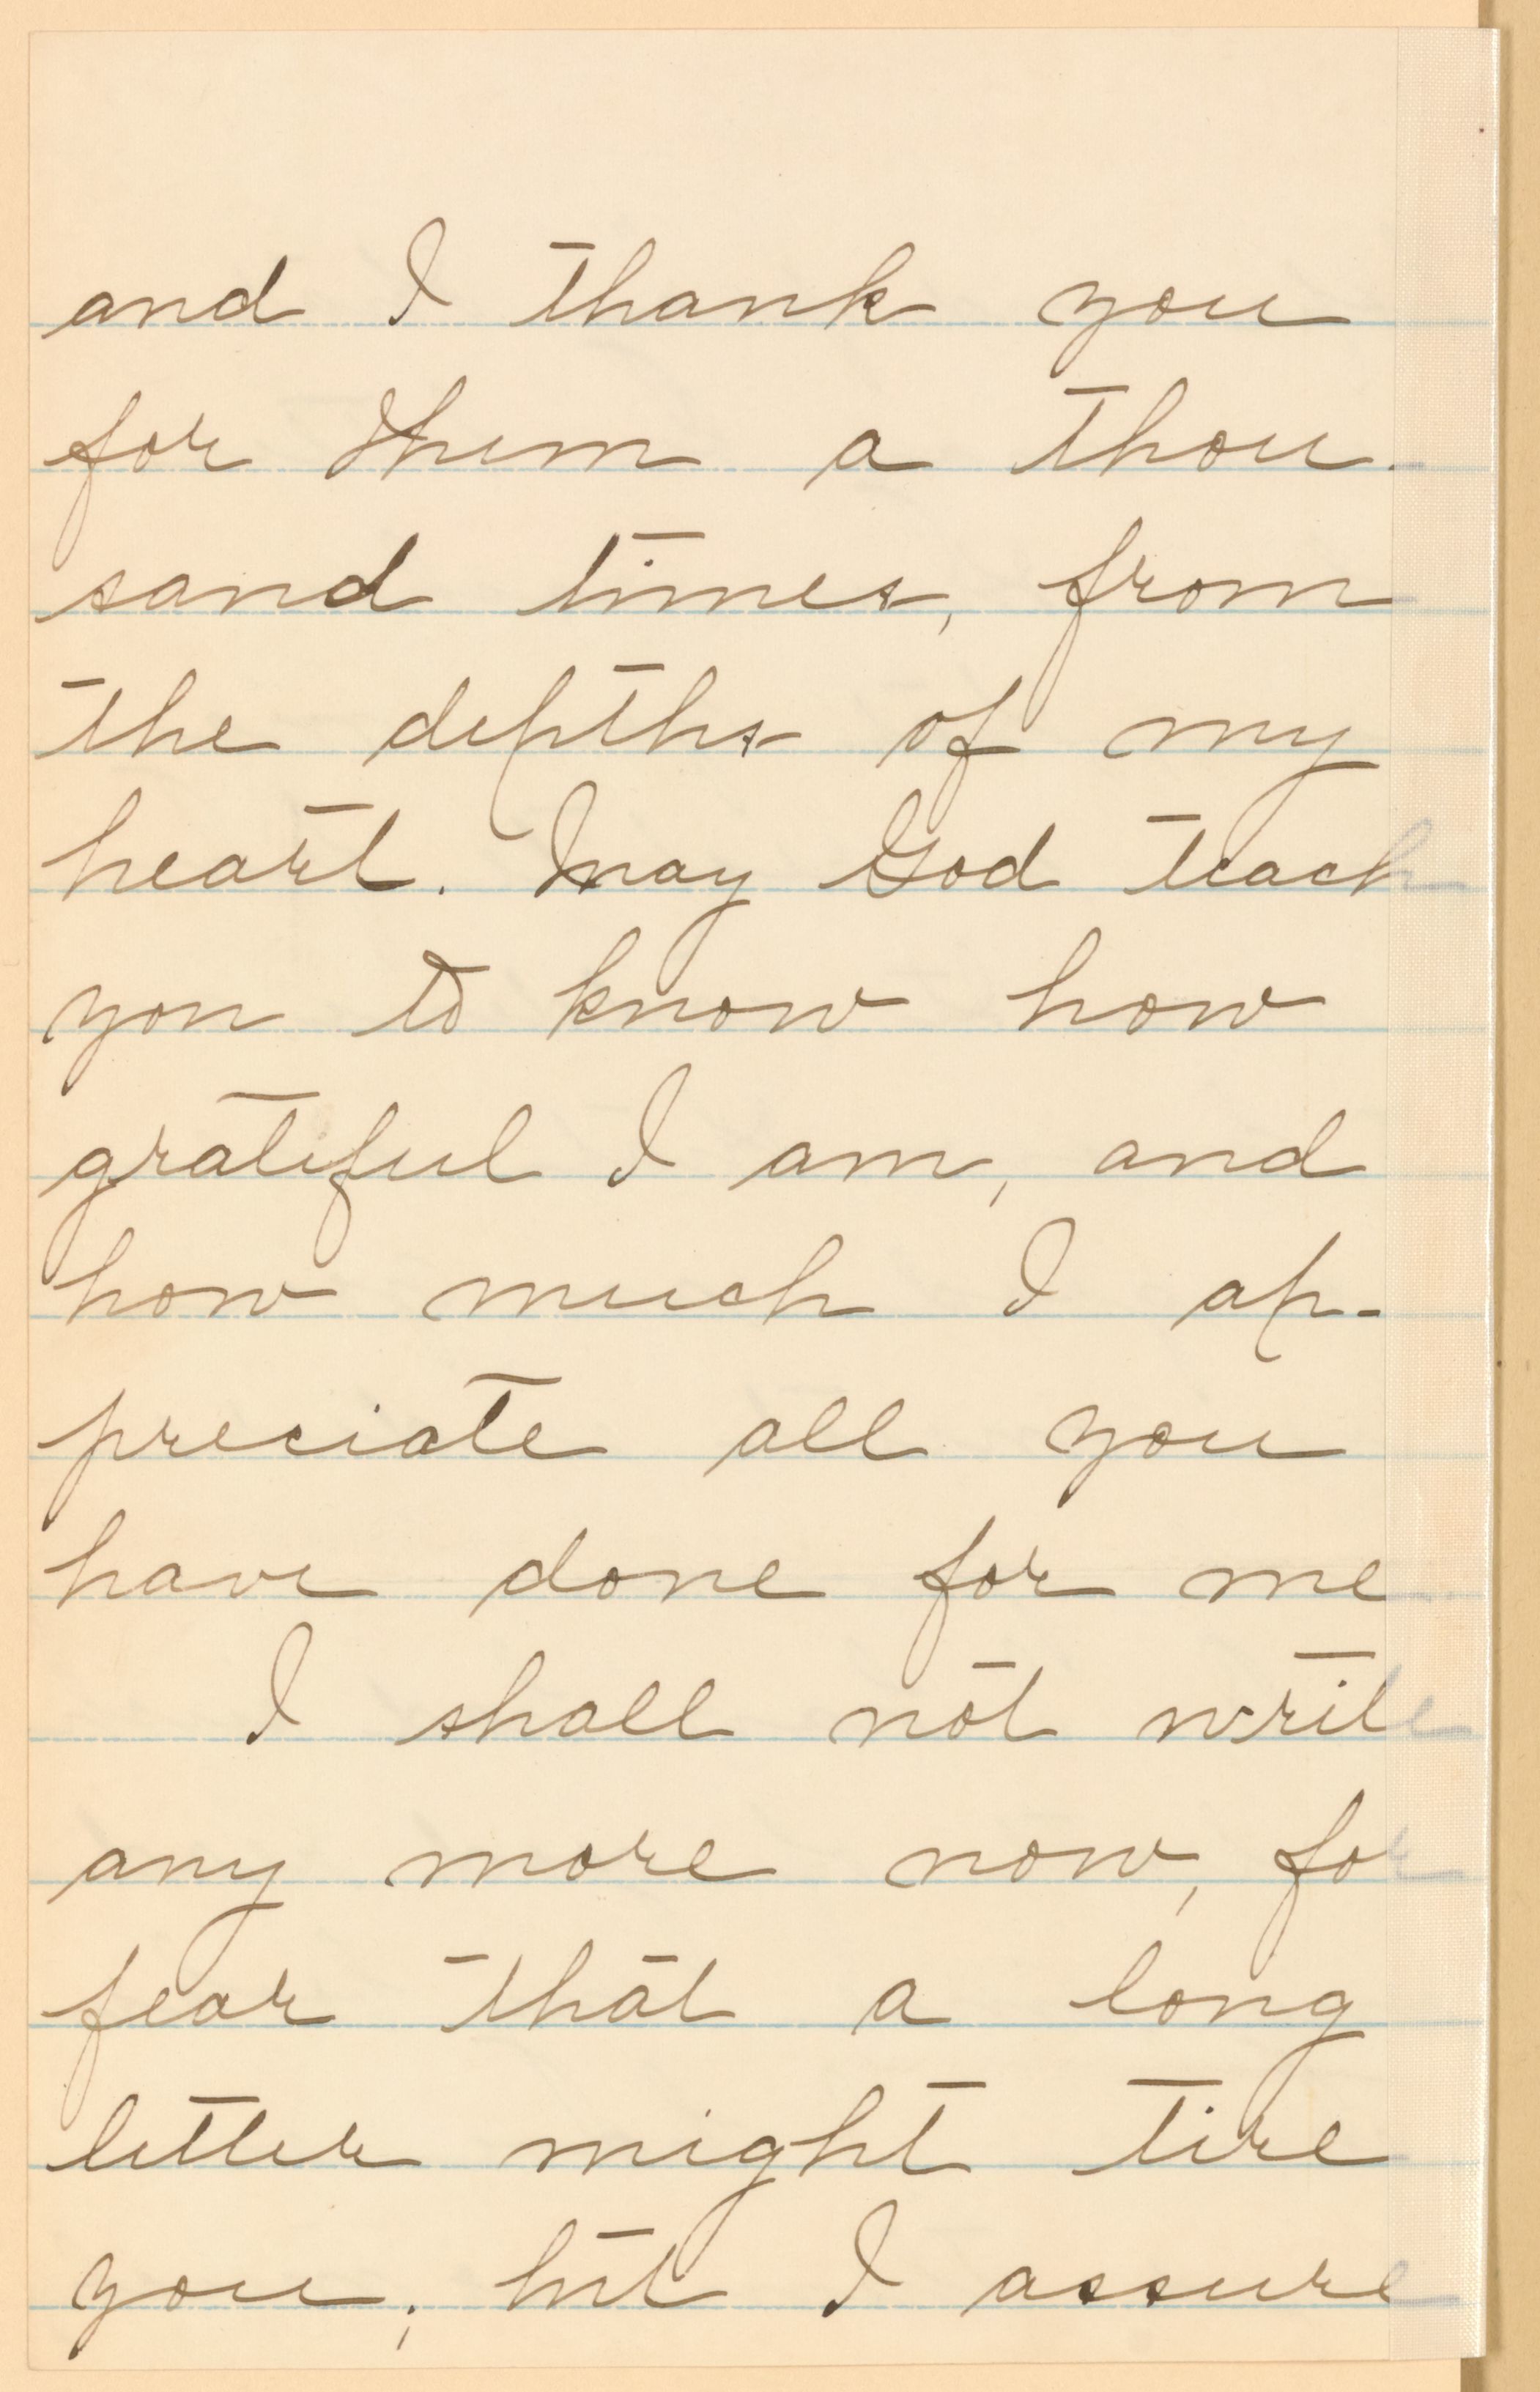 and I thank you
for them a thou-
sand times, from
the depths of my
heart. May God teach
you to know how
grateful I am, and
how much I ap-
preciate all you
have done for me.
I shall not write
any more now, for
fear that a long
letter might tire
you; but I assure